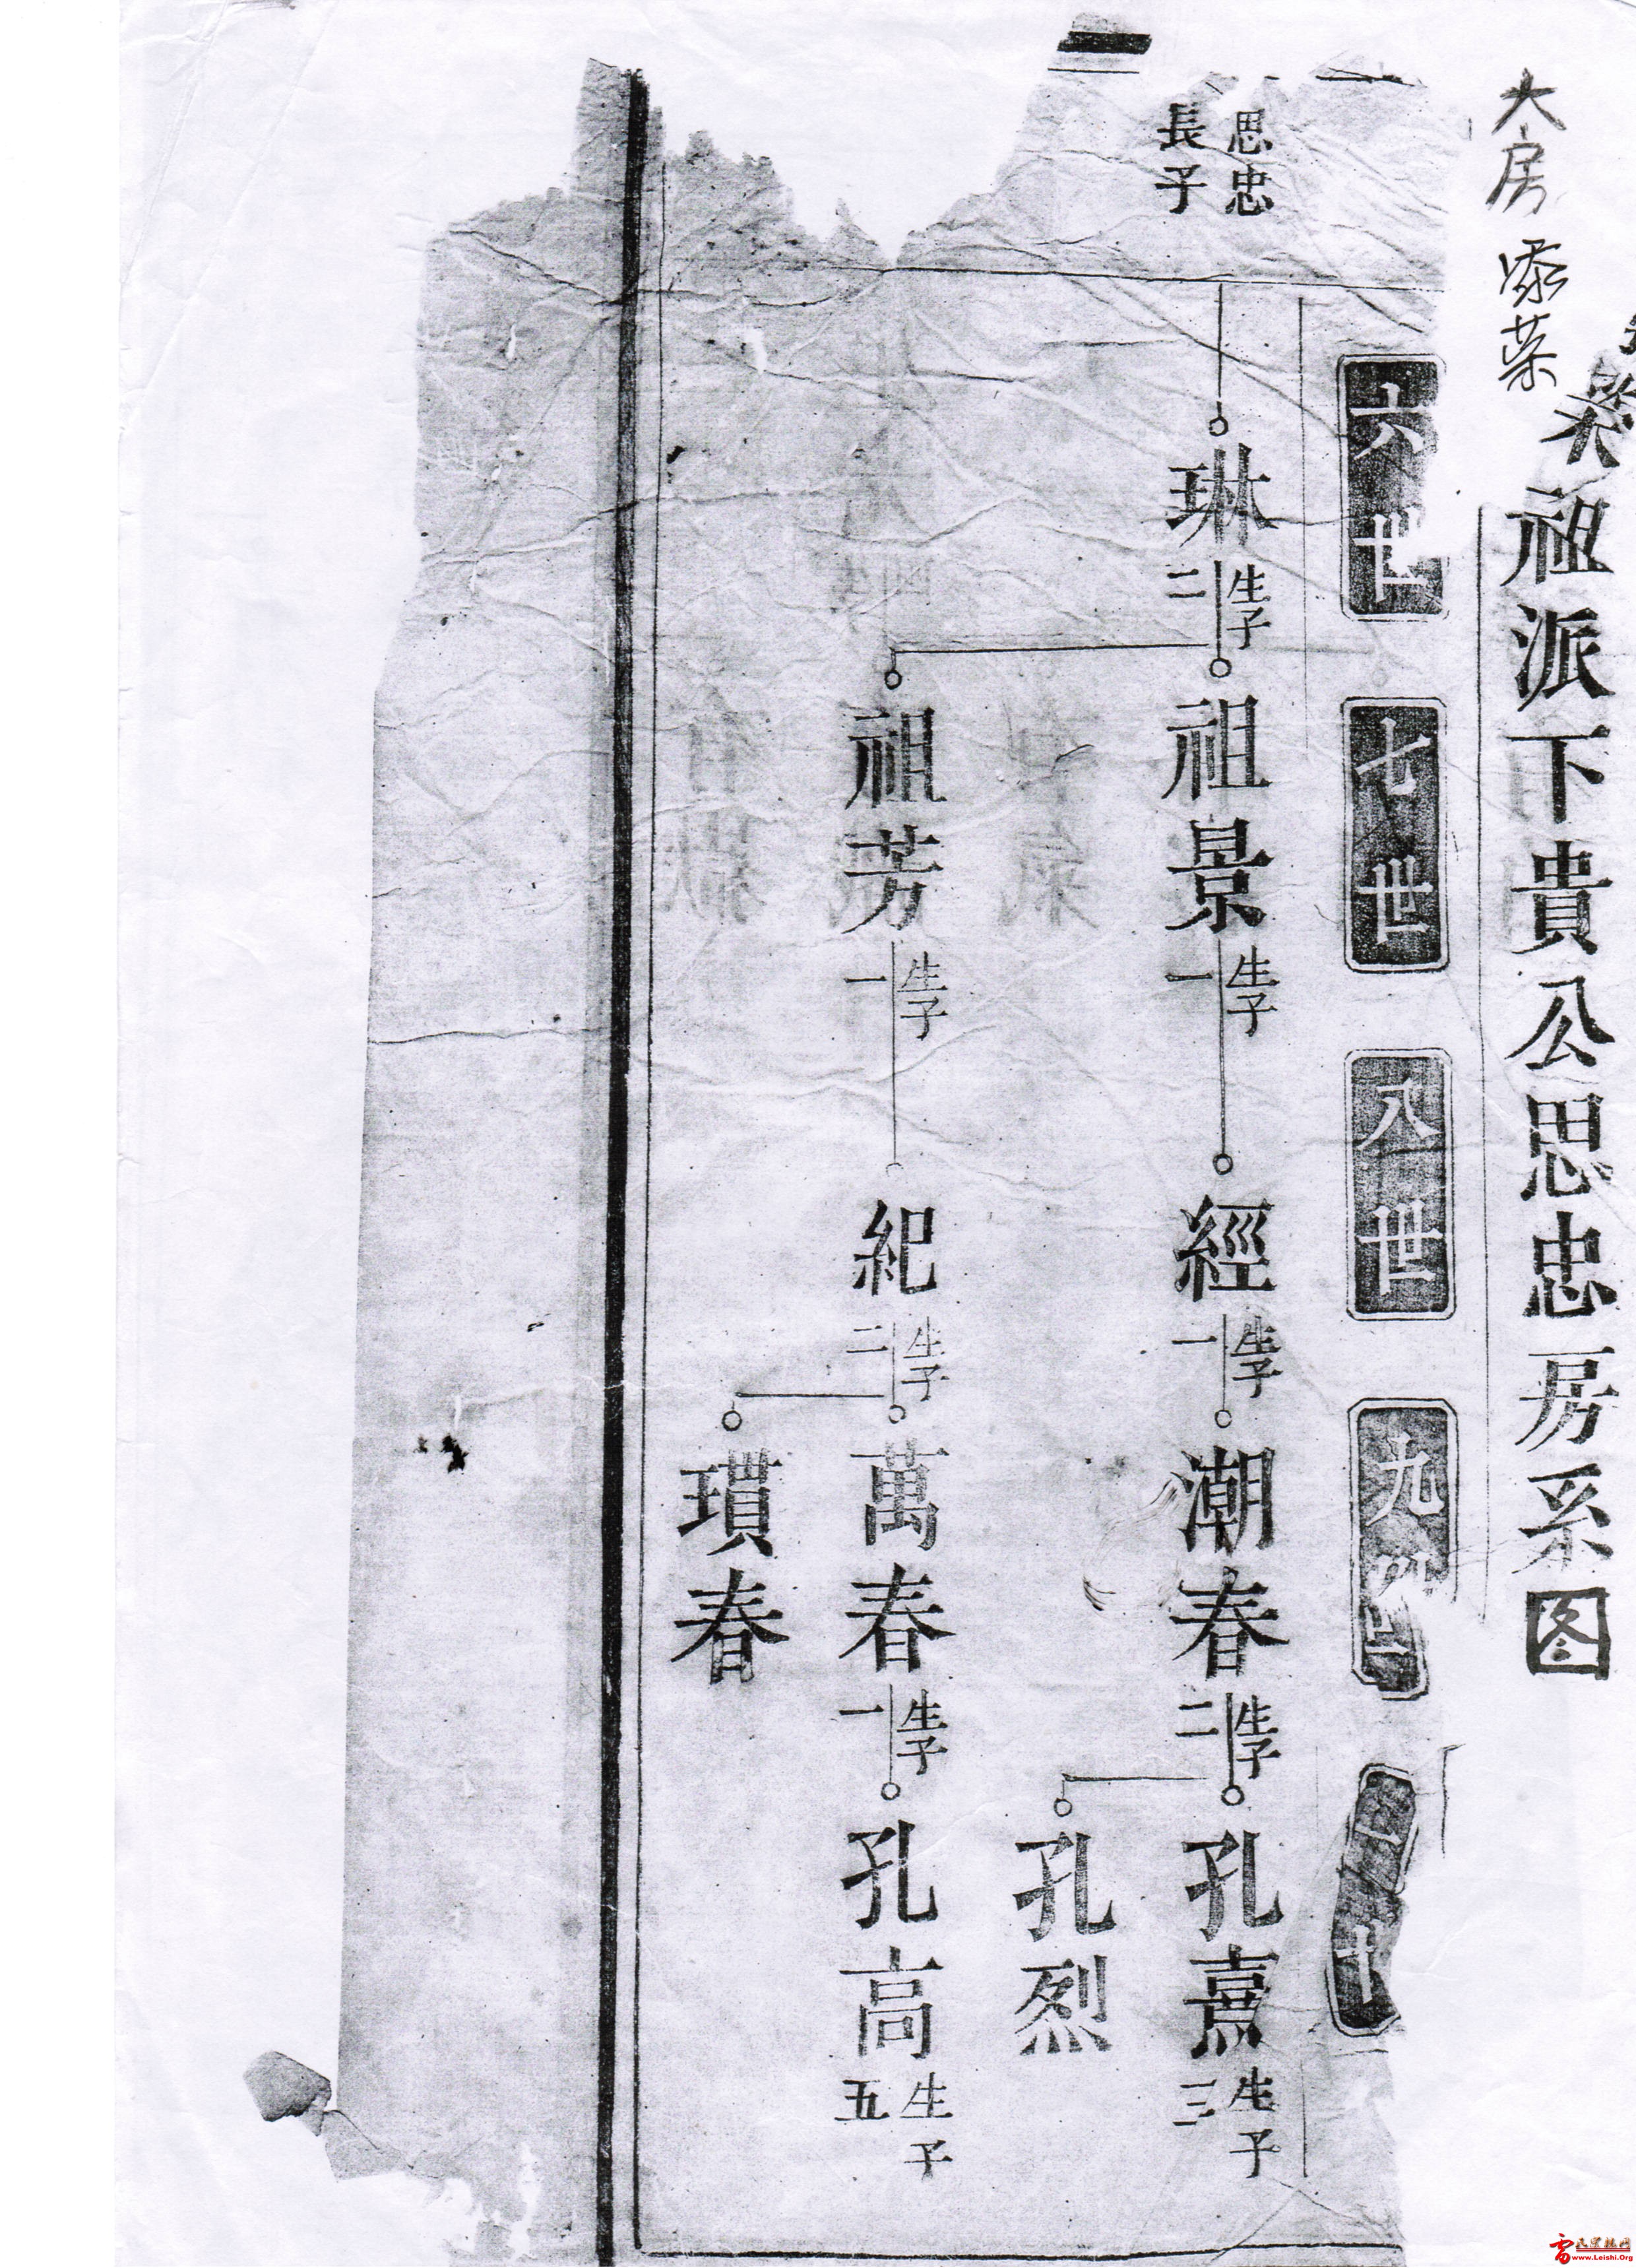 大房 添菜
祖派下貴公思忠房系图
六世
七世
八世
九世
十
思忠
長子
琳 生子二
祖景 生子一
經 生子一
潮春 生子二
孔熹 生子三
孔烈
祖芳 生子一
紀 生子二
萬春 生子一
孔高 生子五
春
www.Leishi.Org